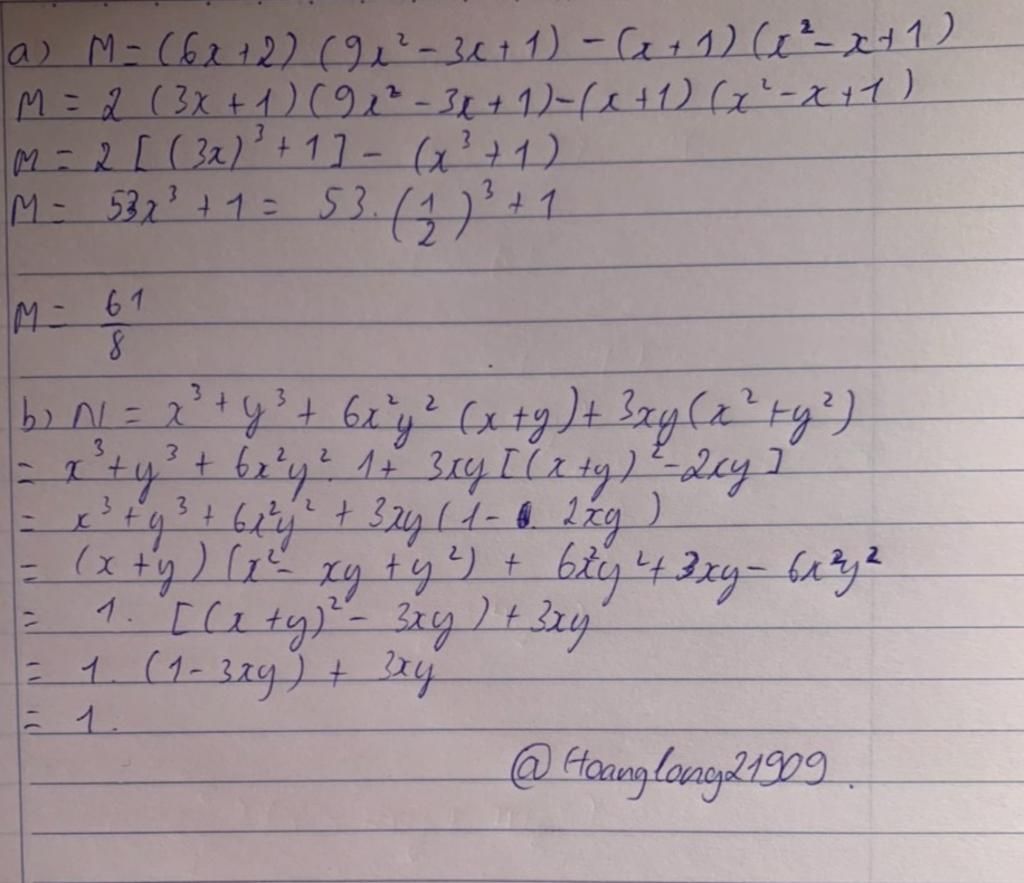 a) M = (6x+2) (9x² - 3x + 1) - (x + 1) (x² - x + 1)
M = 2 (3x + 1) (9x² - 3x + 1) - (x + 1) (x² - x + 1)
M = 2 [(3x)³ + 1] - (x³ + 1)
M = 53x³ + 1 = 53. (1/2)³ + 1
M = 61/8
b) N = x³ + y³ + 6x²y² (x + y) + 3xy (x² + y²)
= x³ + y³ + 6x²y². 1 + 3xy [(x + y)² - 2xy]
= x³ + y³ + 6x²y² + 3xy (1 - 2xy)
= (x + y) (x² - xy + y²) + 6x²y² + 3xy - 6x²y²
= 1. [(x + y)² - 3xy) + 3xy
= 1. (1 - 3xy) + 3xy
= 1.
@Hoanglong21909.